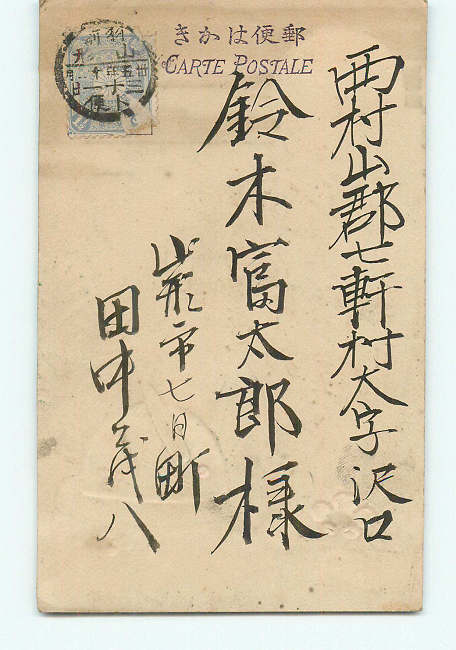 きかは便郵
CARTE POSTALE
西村山郡七軒村大字沢口
鈴木富太郎様
山形市七日町
田中茂八